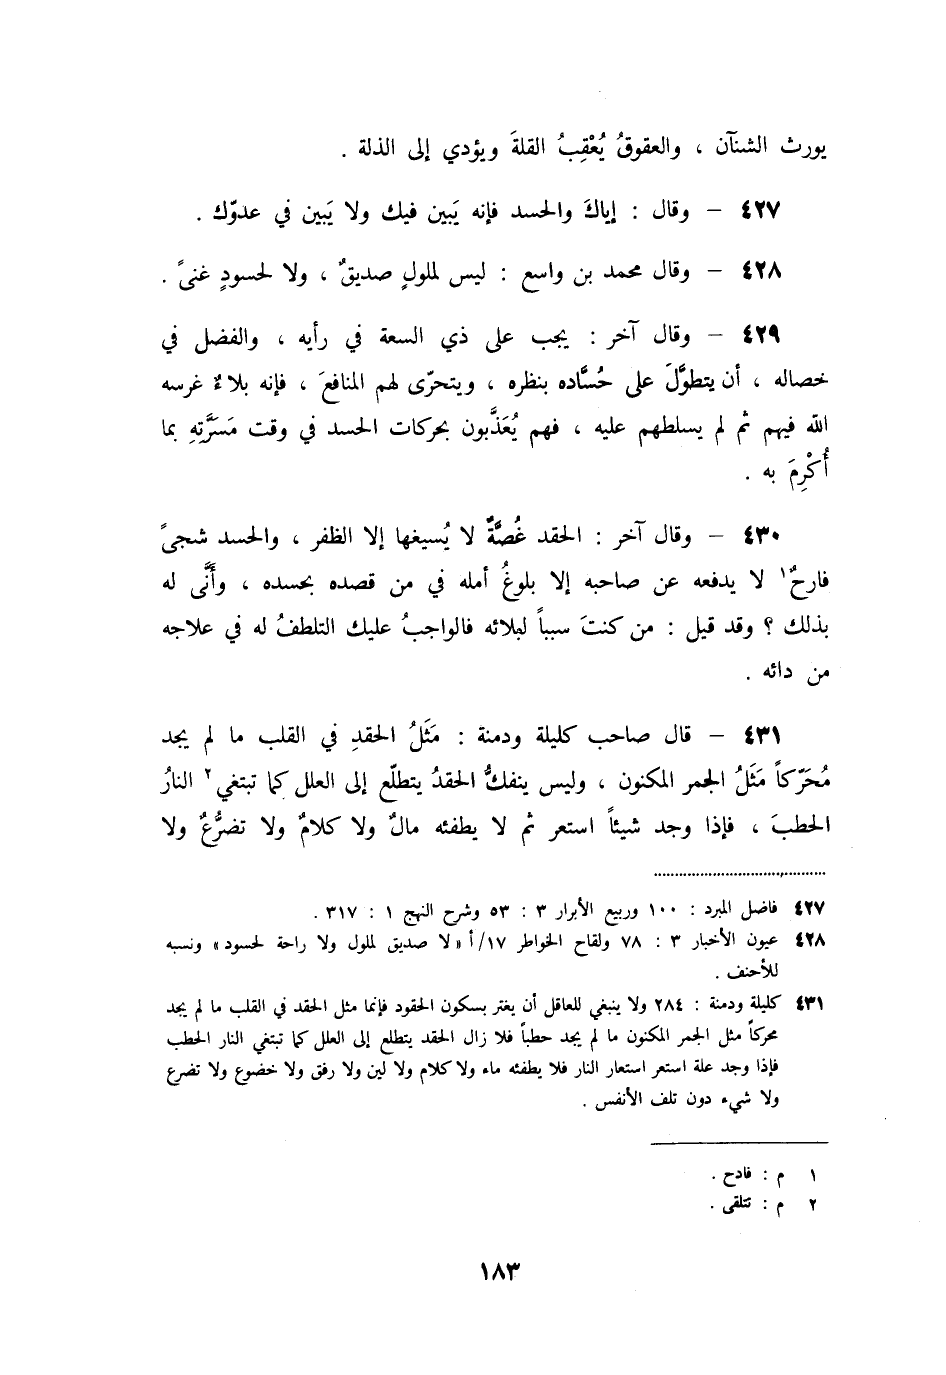 يورث الشنآن ، والعقوقُ يُعْقِبُ القلةَ ويؤدي إلى الذلة .
٤٢٧ – وقال : إياكَ والحسد فإنه يَبين فيك ولا يَبين في عدوّك .
٤٢٨ – وقال محمد بن واسع : ليس لملولٍ صديقٌ ، ولا لحسودٍ غنىً .
٤٢٩ – وقال آخر : يجب على ذي السعة في رأيه ، والفضل في
خصاله ، أن يتطوَّلَ على حُسَّاده بنظره ، ويتحرّى لهم المنافعَ ، فإنه بلاءٌ غرسه
الله فيهم ثم لم يسلطهم عليه ، فهم يُعَذَّبون بحركات الحسد في وقت مَسَرَّتِهِ بما
أُكْرِمَ به .
٤٣٠ – وقال آخر : الحقد غُصَّةٌ لا يُسيغها إلا الظفر ، والحسد شجىً
فارحٌ١ لا يدفعه عن صاحبه إلا بلوغُ أمله في من قصده بحسده ، وأنَّى له
بذلك ؟ وقد قيل : من كنتَ سبباً لبلائه فالواجبُ عليك التلطفُ له في علاجه
من دائه .
٤٣١ – قال صاحب كليلة ودمنة : مَثَلُ الحقدِ في القلب ما لم يجد
مُحَرّكاً مَثَلُ الجمر المكنون ، وليس ينفكُّ الحقدُ يتطلّع إلى العلل كما تبتغي٢ النارُ
الحطبَ ، فإذا وجد شيئاً استعر ثم لا يطفئه مالٌ ولا كلامٌ ولا تضرُّعٌ ولا
٤٢٧ فاضل المبرد : ١٠٠ وربيع الأبرار ٣ : ٥٣ وشرح النهج ١ : ٣١٧ .
٤٢٨ عيون الأخبار ٣ : ٧٨ ولقاح الخواطر ١٧/أ «لا صديق لملول ولا راحة لحسود» ونسبه
للأحنف .
٤٣١ كليلة ودمنة : ٢٨٤ ولا ينبغي للعاقل أن يغتر بسكون الحقود فإنما مثل الحقد في القلب ما لم يجد
محركاً مثل الجمر المكنون ما لم يجد حطباً فلا زال الحقد يتطلع إلى العلل كما تبتغي النار الحطب
فإذا وجد علة استعر استعار النار فلا يطفئه ماء ولا كلام ولا لين ولا رفق ولا خضوع ولا تضرع
ولا شيء دون تلف الأنفس .
١ م : فادح .
٢ م : تتلقى .
١٨٣